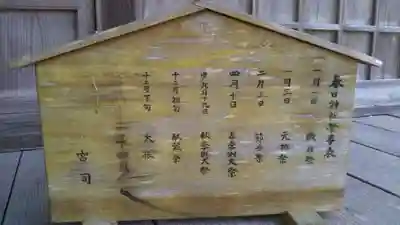 春日神社祭事表
一月一日 歳旦祭
一月三日 元始祭
二月三日 節分祭
四月十日 春季例大祭
十月十九日 秋季例大祭
十二月初旬 献穀祭
十二月下旬 大祓
宮司